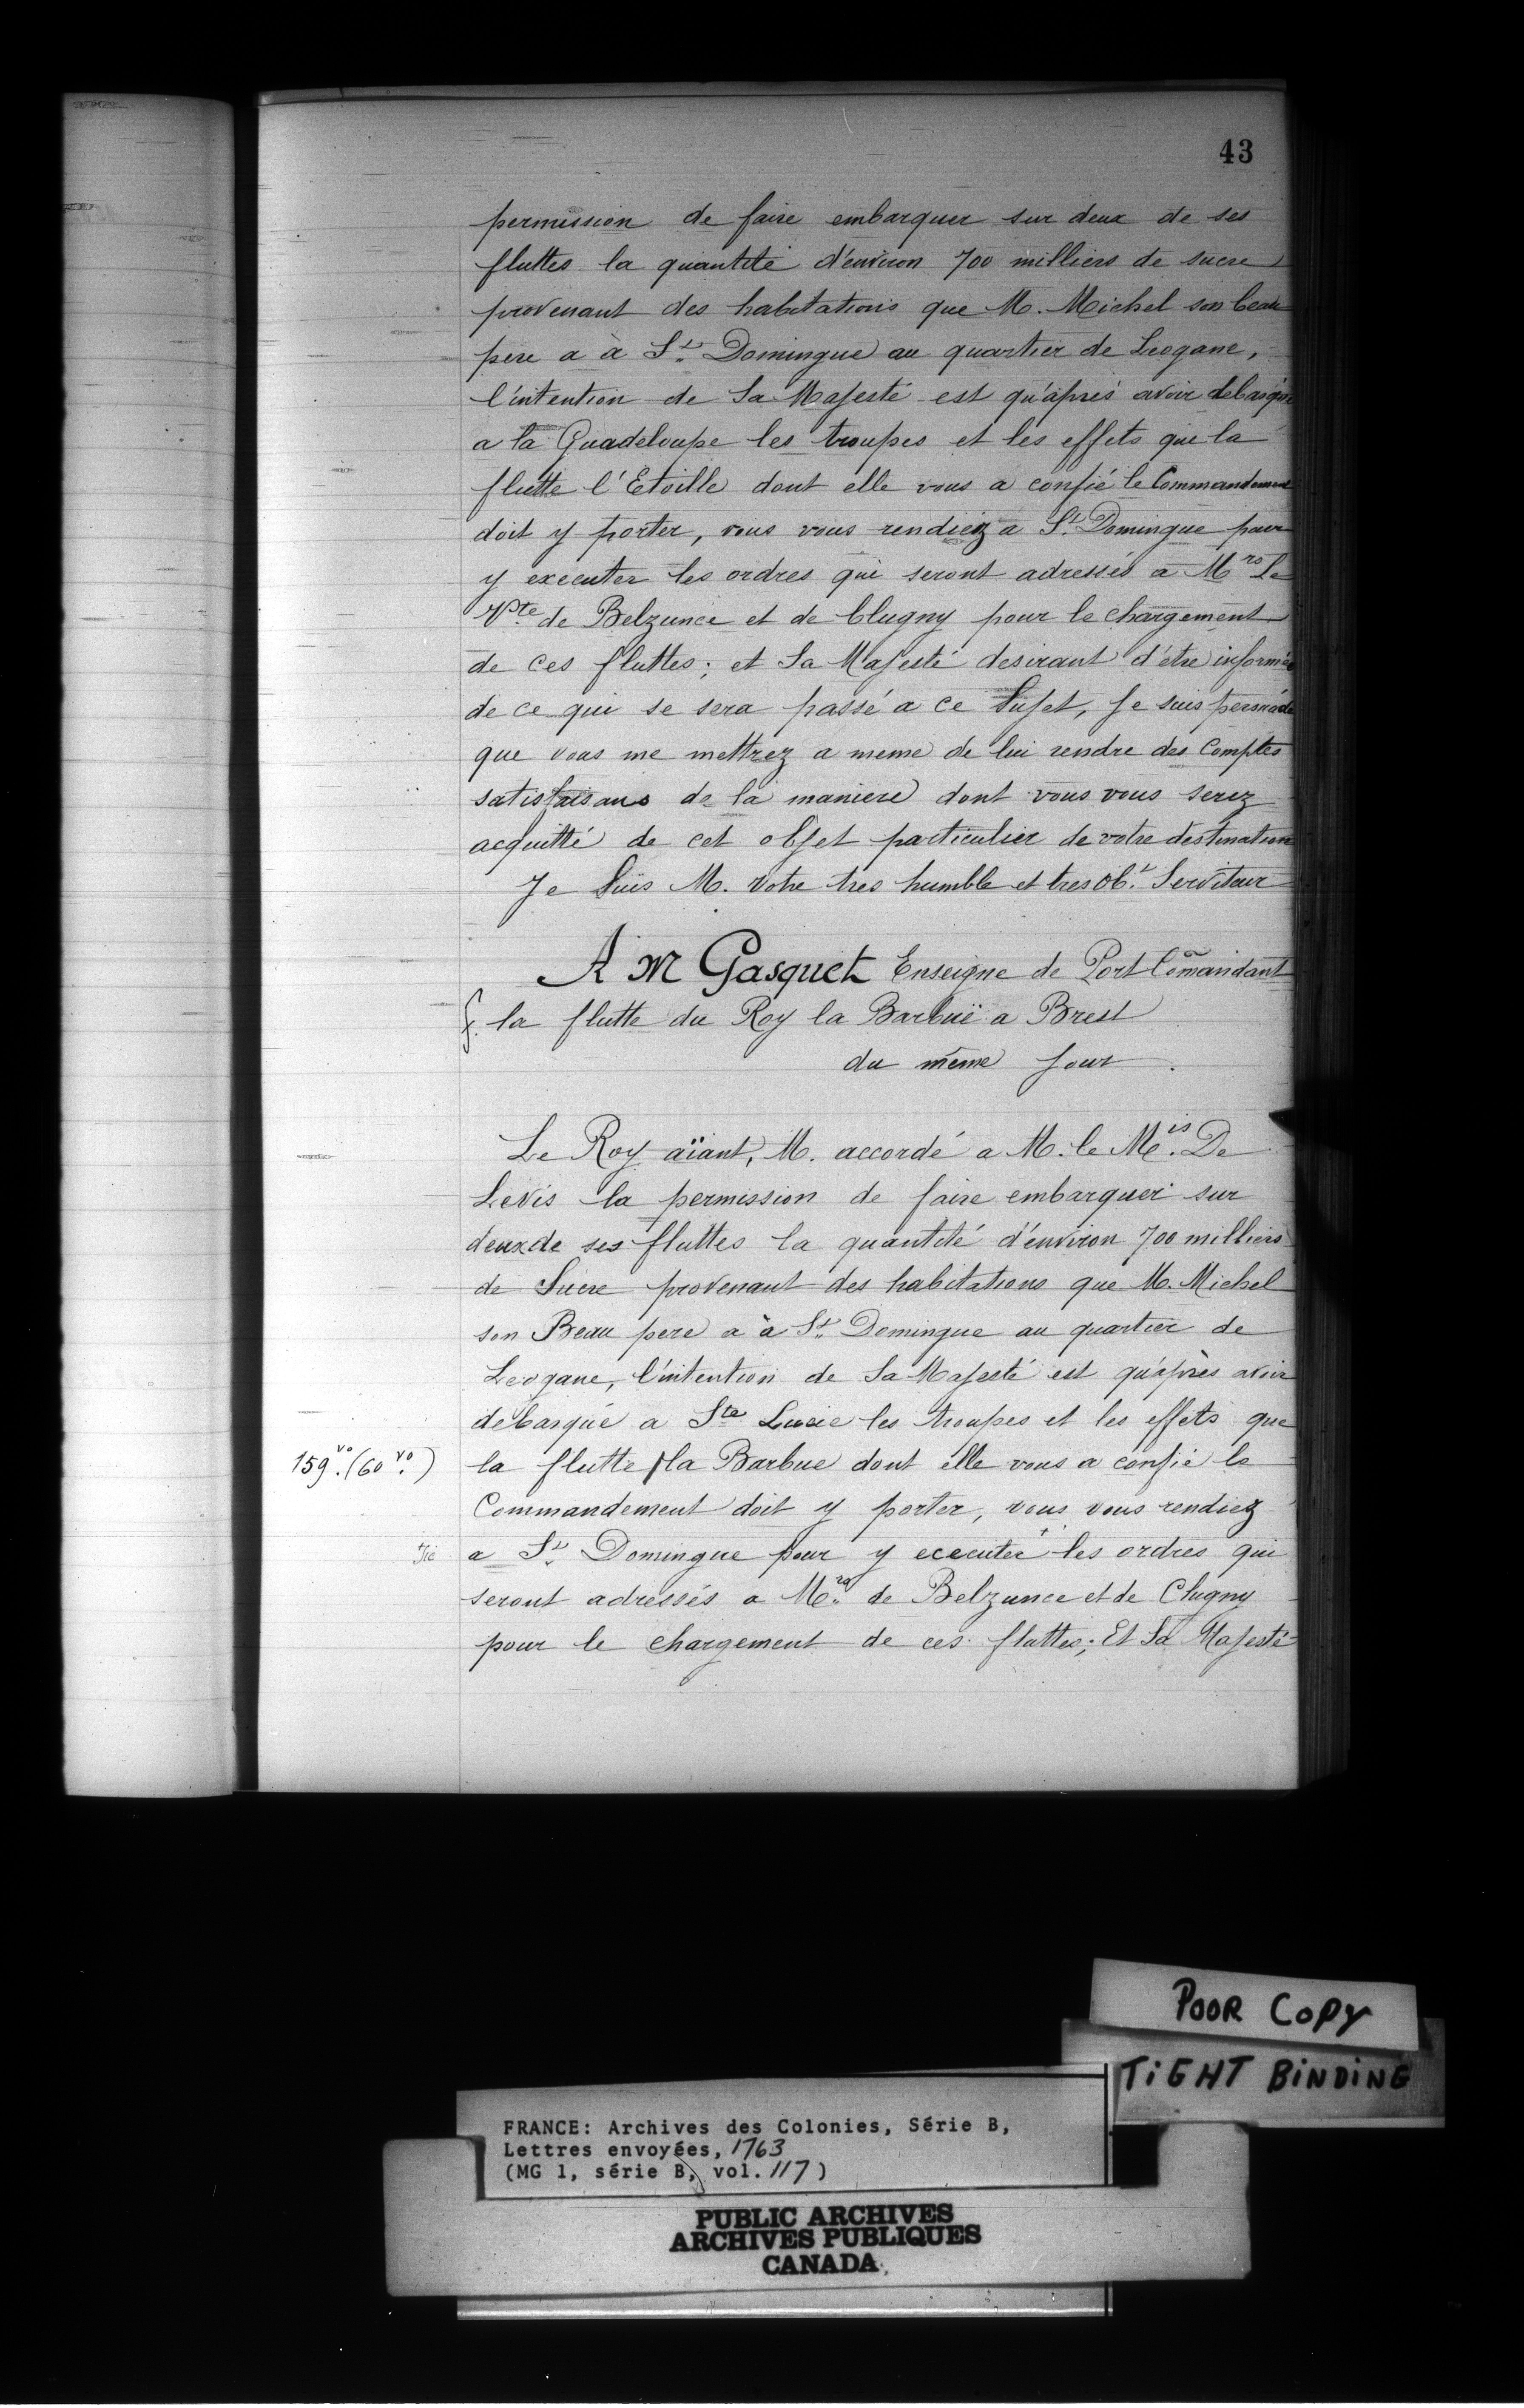 43
permission de faire embarquer sur deux de ses
fluttes la quantité d'environ 700 milliers de sucre
provenant des habitations que M. Michel son beau
pere a à St. Domingue au quartier de Leogane,
l'intention de Sa Majesté est qu'aprés avoir debarqué
a la Guadeloupe les troupes et les effets que la
flutte l'Etoille dont elle vous a confié le Commandement
doit y porter, vous vous rendiez a St. Domingue pour
y executer les ordres qui seront adressés a Mrs Le
Vte de Belzunce et de Clugny pour le chargement
de ces fluttes; et Sa Majesté desirant d'être informée
de ce qui se sera passé a ce Sujet, Je suis persuadé
que vous me mettrez a meme de lui rendre des Comptes
satisfaisans de la maniere dont vous vous serez
acquitté de cet objet particulier de votre destination
Je Suis M. votre tres humble et tres Obt. Serviteur
A M Gasquet Enseigne de Port Comandant
la flutte du Roy la Barbuë a Brest
du même Jour.
Le Roy aïant, M. accordé a M. le Mis. De
Levis la permission de faire embarquer sur
deux de ses fluttes la quantité d'environ 700 milliers
de Sucre provenant des habitations que M. Michel
son Beau pere a à St. Domingue au quartier de
Leogane, l'intention de Sa Majesté est qu'après avoir
debarqué a Ste Lucie les troupes et les effets que
159.vo (60 vo.) la flutte / la Barbue dont elle vous a confié le
Commandement doit y porter, vous vous rendiez
+sic a St. Domingue pour y ececuter + les ordres qui
seront adressés a Mrs. de Belzunce et de Clugny
pour le chargement de ces fluttes; Et Sa Majesté
POOR COPY
TIGHT BINDING
FRANCE: Archives des Colonies, Série B,
Lettres envoyées, 1763
(MG 1, série B, vol. 117)
PUBLIC ARCHIVES
ARCHIVES PUBLIQUES
CANADA